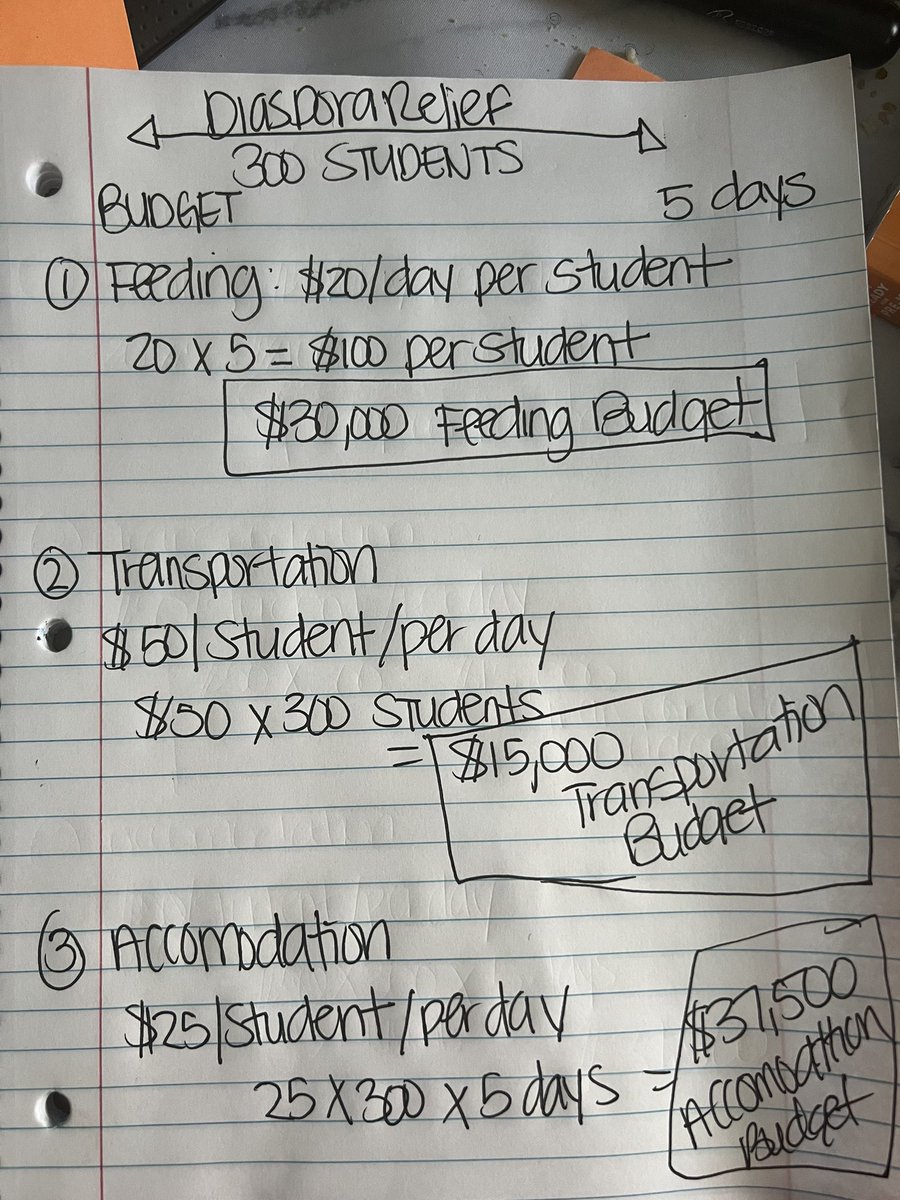 DiasporaRelief
300 STUDENTS
BUDGET 5 days
① Feeding: $20/day per student
20 x 5 = $100 per student
$30,000 Feeding Budget
② Transportation
$50/Student/per day
$50 x 300 Students
= $15,000
Transportation
Budget
③ Accomodation
$25/Student/per day
25 x 300 x 5 days = $37,500
Accomodation
Budget